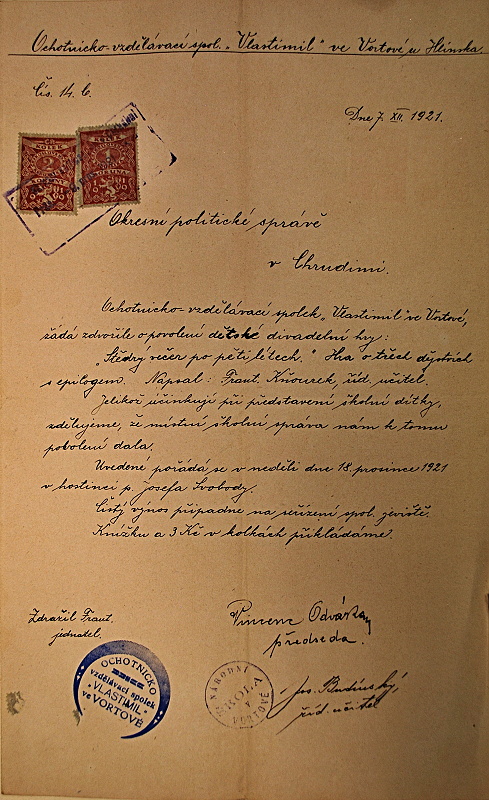 Ochotnicko-vzdělávací spol. „Vlastimil" ve Vortové u Hlinska.
Čís. 14. b.
Dne 7. XII. 1921.
KOLEK
2
KOLEK
1
KORUNA
Okresní politické správě
v Chrudimi.
Ochotnicko-vzdělávací spolek „Vlastimil" ve Vortové,
žádá zdvořile o povolení dětské divadelní hry:
„Štědrý večer po pěti létech." Hra o třech dějstvích
s epilogem. Napsal: Frant. Kňourek, říd. učitel.
Jelikož účinkují při představení školní dítky,
zdělujeme, že místní školní správa nám k tomu
povolení dala.
Uvedené pořádá se v neděli dne 18. prosince 1921
v hostinci p. Josefa Svobody.
Čistý výnos připadne na seřízení spol. jeviště.
Knížku a 3 Kč v kolkách přikládáme.
Zdražil Frant.
jednatel.
Vincenc Odvárka
předseda.
OCHOTNICKO
vzdělávací spolek
„VLASTIMIL"
ve
VORTOVÉ
NÁRODNÍ
VORTOVÉ
Jos. Budínský,
říd. učitel